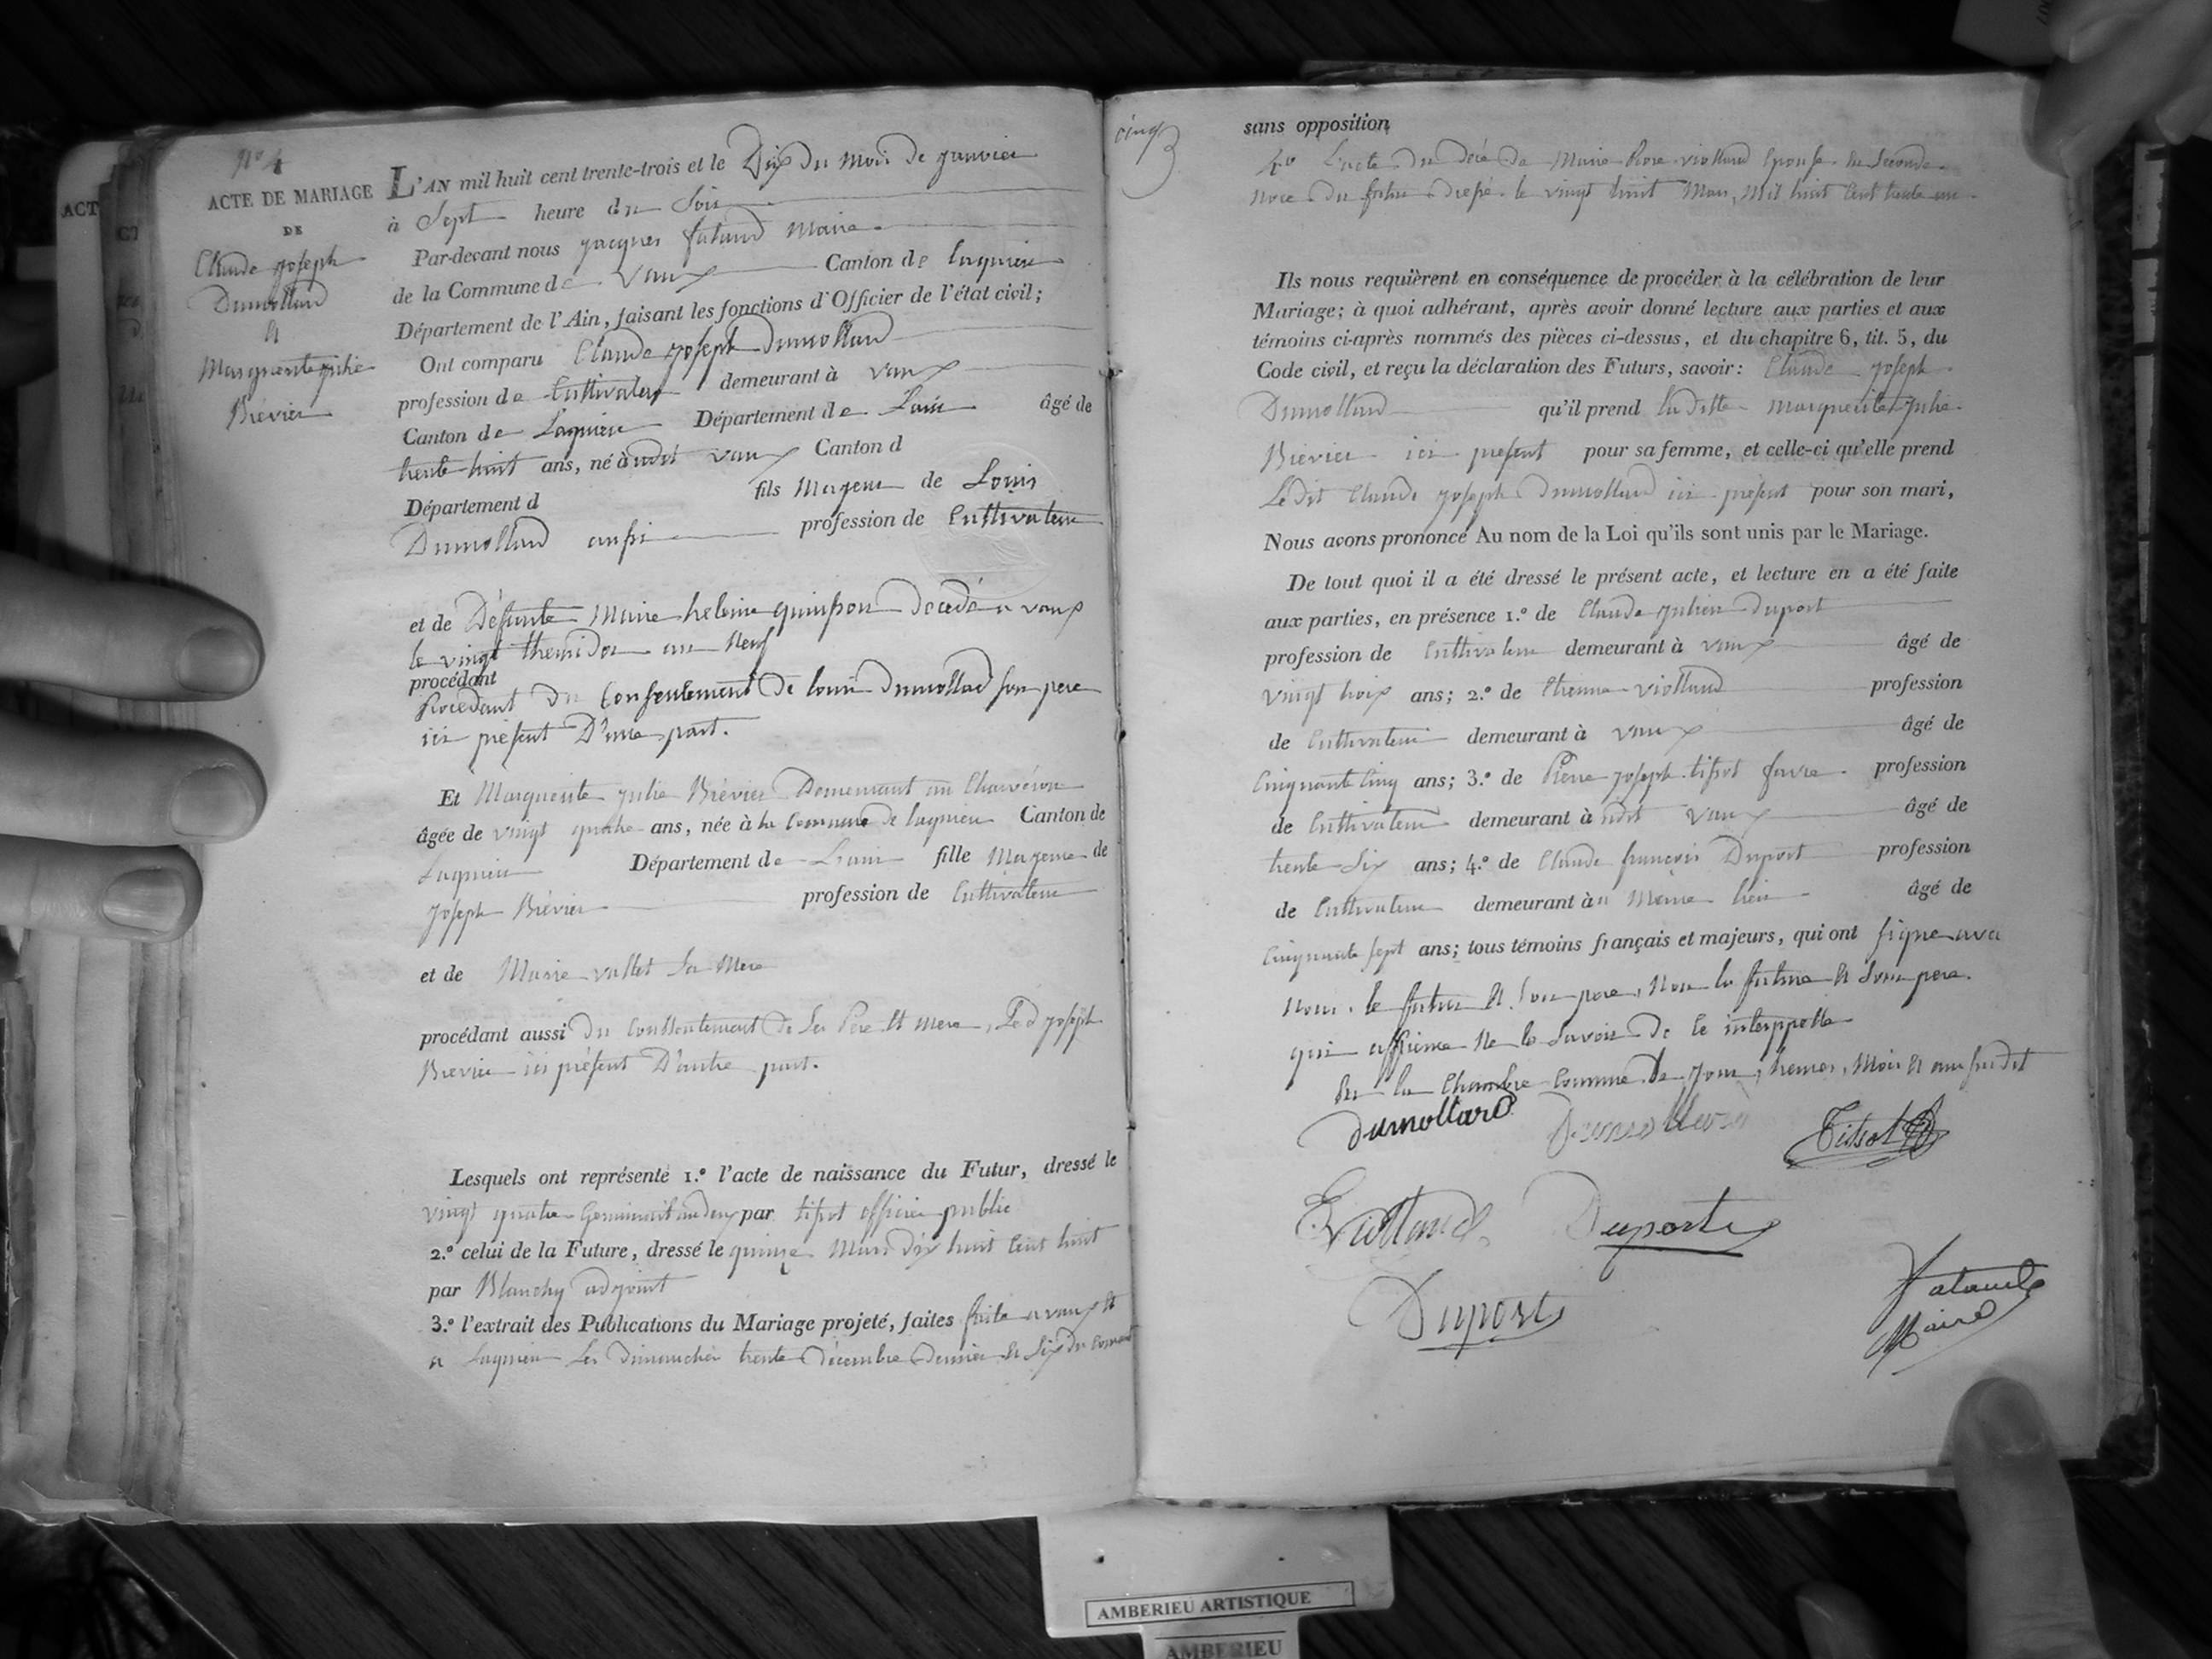 N° 4
ACTE DE MARIAGE
DE
Claude joseph
Dumollard
et
Marguerite julie
Brévier
L'AN mil huit cent trente-trois et le Dix du mois de janvier
à Sept heure du Soir
Par-devant nous jacques fataud Maire
de la Commune de Vaux Canton de lagnieu
Département de l'Ain, faisant les fonctions d'Officier de l'état civil;
Ont comparu Claude joseph Dumollard
profession de Cultivateur demeurant à Vaux
Canton de Lagnieu Département de Lain âgé de
trente huit ans, né à udit vaux Canton d
Département d fils Majeur de Louis
Dumollard aussi profession de Cultivateur
et de Défunte Marie heleine quinson décédé a vaux
le vingt themidor an Neuf
procédant
Procedant du Consentement de louis Dumollard son pere
ici présent D'une part.
Et Marguerite julie Brévier Demeurant au
âgée de vingt quatre ans, née à la Commune de lagnieu Canton de
Lagnieu Département de Lain fille Majeure de
joseph Brévier profession de Cultivateur
et de Marie vallet Sa Mere
procédant aussi du Consentement de Ses Pere et mere, Led joseph
Brévier ici présent D'autre part.
Lesquels ont représenté 1.° l'acte de naissance du Futur, dressé le
vingt quatre Germinal an deux par tissot officier public
2.° celui de la Future, dressé le quinze Mars dix huit Cent huit
par Blanchy adjoint
3.° l'extrait des Publications du Mariage projeté, faites faite a vaux et
a Lagnieu Les Dimanches trente Décembre Dernier et Six du Courant
cinq
sans opposition
4° L'acte du décé de Marie Rose viollaud Epouse En Seconde
Noce du futur drepé le vingt huit Mars, Mil huit Cent trente un
Ils nous requièrent en conséquence de procéder à la célébration de leur
Mariage; à quoi adhérant, après avoir donné lecture aux parties et aux
témoins ci-après nommés des pièces ci-dessus, et du chapitre 6, tit. 5, du
Code civil, et reçu la déclaration des Futurs, savoir: Claude joseph
Dumollard qu'il prend laditte Marguerite julie
Brévier ici présent pour sa femme, et celle-ci qu'elle prend
Ledit Claude joseph Dumollard ici présent pour son mari,
Nous avons prononcé Au nom de la Loi qu'ils sont unis par le Mariage.
De tout quoi il a été dressé le présent acte, et lecture en a été faite
aux parties, en présence 1.° de Claude julien Duport
profession de Cultivateur demeurant à vaux âgé de
vingt troix ans; 2.° de Etienne viollaud profession
de Cultivateur demeurant à vaux âgé de
Cinquante Cinq ans; 3.° de Pierre joseph tissot favre profession
de Cultivateur demeurant à udit vaux âgé de
trente Six ans; 4.° de Claude françois Duport profession
de Cultivateur demeurant à u Meme lieu âgé de
Cinquante Sept ans; tous témoins français et majeurs, qui ont signe avec
nous. le futur et Son pere, Non la future et Son pere
qui affirme Ne le Savoir de Ce interppelle
En la Chambre Commune Le jour, heures, Mois et an susdit
dumollard Dumollard Tissot
E. Viollaud Duport
Duport
Fataud
Maire
AMBERIEU ARTISTIQUE
AMBERIEU